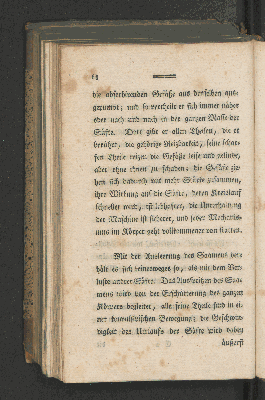 64
die absorbirenden Gefäße aus derselben aus-
gepumpt; und so vertheilt er sich immer näher
oder nach und nach in der ganzen Masse der
Säfte. Dort gibt er allen Theilen, die er
berührt, die gehörige Reizbarkeit, seine schar-
fen Theile reizen die Gefäße leise und gelinde,
aber ohne ihnen zu schaden; die Gefäße zie-
hen sich dadurch was mehr Stärke zusammen,
ihre Wirkung auf die Säfte, deren Kreislauf
schneller wird, ist lebhafter, die Unterhaltung
der Maschine ist sicherer, und jeder Mechanis-
mus im Körper geht vollkommener von statten.
Mit der Ausleerung des Saamens ver-
hält es sich keinesweges so, als mit dem Ver-
luste anderer Säfte. Das Ausspritzen des Saa-
mens wird von der Erschütterung des ganzen
Körpers begleitet, alle seine Theile sind in ei-
ner konvulsivischen Bewegung; die Geschwin-
digkeit des Umlaufs der Säfte wird dabey
äußerst